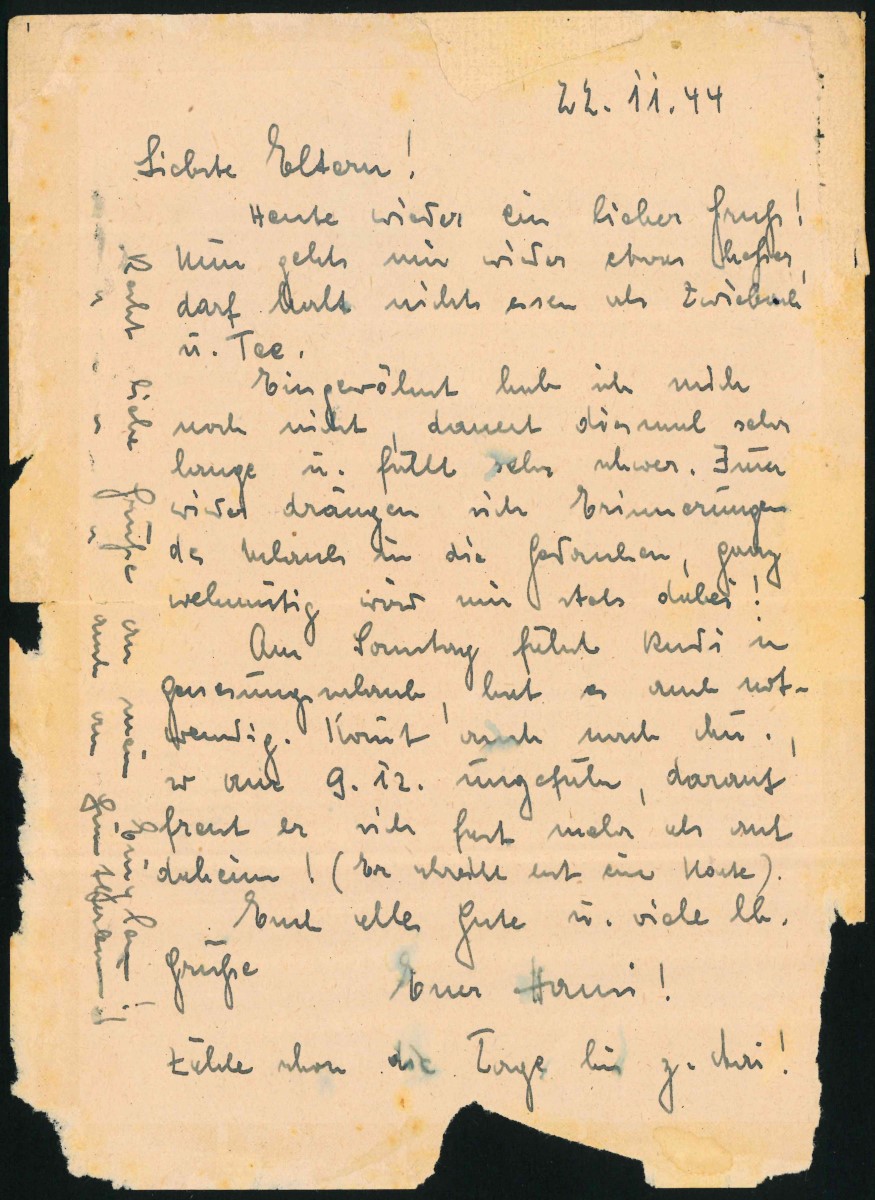 22.11.44
Liebste Eltern!
Heute wieder ein lieber Gruß!
Nun gehts mir wieder etwas besser,
darf halt nichts essen als Zwieback
u. Tee.
Eingewöhnt hab ich mich
noch nicht, dauert diesmal sehr
lange u. fällt sehr schwer. Immer
wieder drängen sich Erinnerungen
des Urlaubs in die Gedanken, ganz
wehmütig wird mir stets dabei!
Am Sonntag fährt Rudi in
Genesungsurlaub, hat es auch not-
wendig. Kommt auch nach
am 9.12. ungefähr, darauf
freut er sich fast mehr als auf
daheim! (Er schreibt erst eine Karte).
Euch alles Gute u. viele lb.
Grüße
Euer Hansi!
Zähle schon die Tage bis z.
Recht liebe Grüße an mein
" " " " auch an